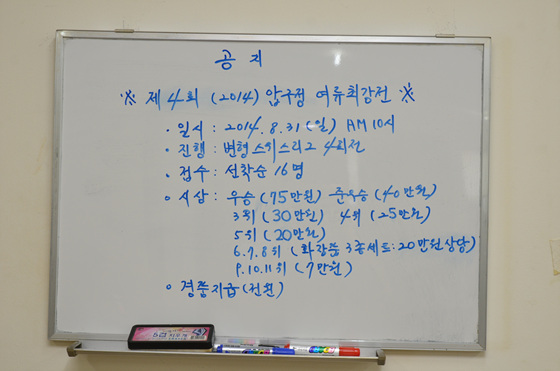 공 지
※ 제4회 (2014) 압구정 여류최강전 ※
· 일시 : 2014. 8. 31 (일) AM 10시
· 진행 : 변형스위스리그 4회전
· 접수 : 선착순 16명
· 시상 : 우승 (75만원) 준우승 (40만원)
3위 (30만원) 4위 (25만원)
5위 (20만원)
6.7.8위 (화장품 3종세트 : 20만원상당)
9.10.11위 (7만원)
· 경품지급 (전원)